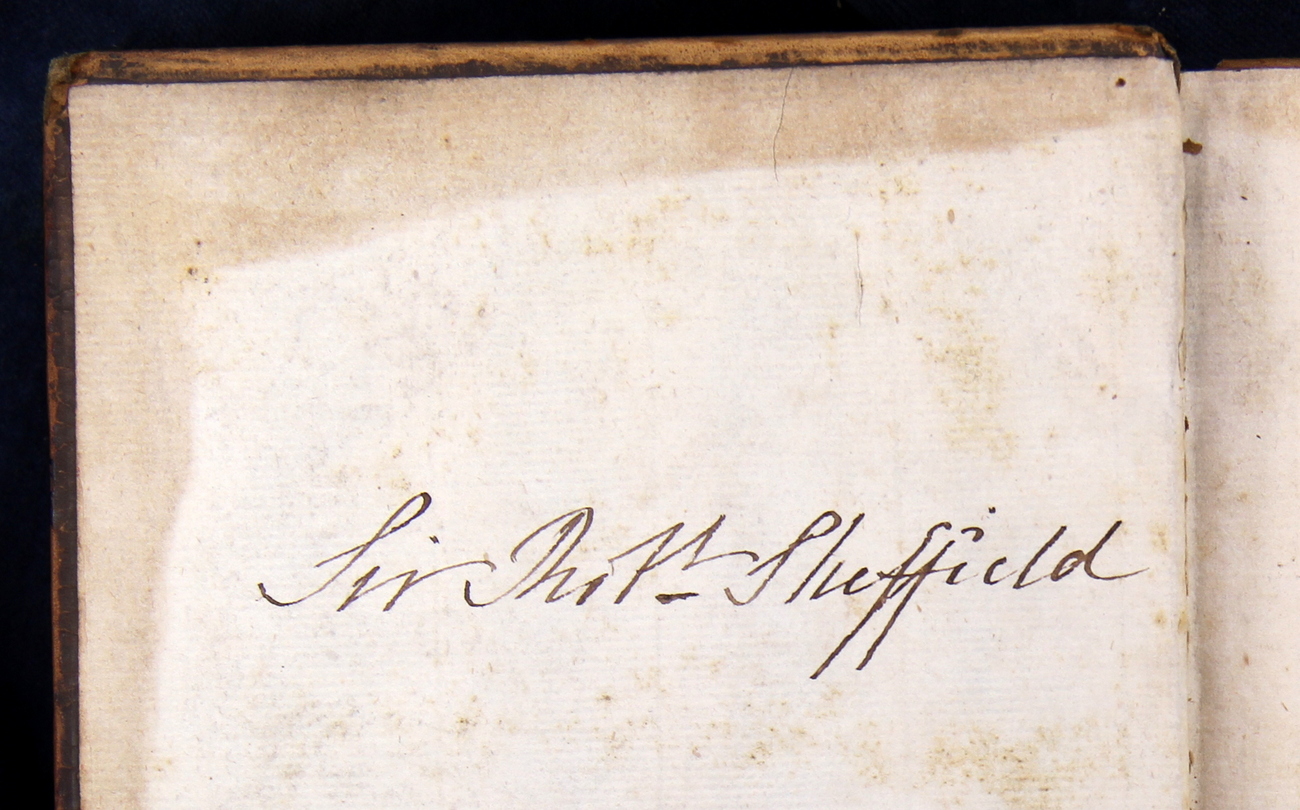 Sir Robt. Sheffield